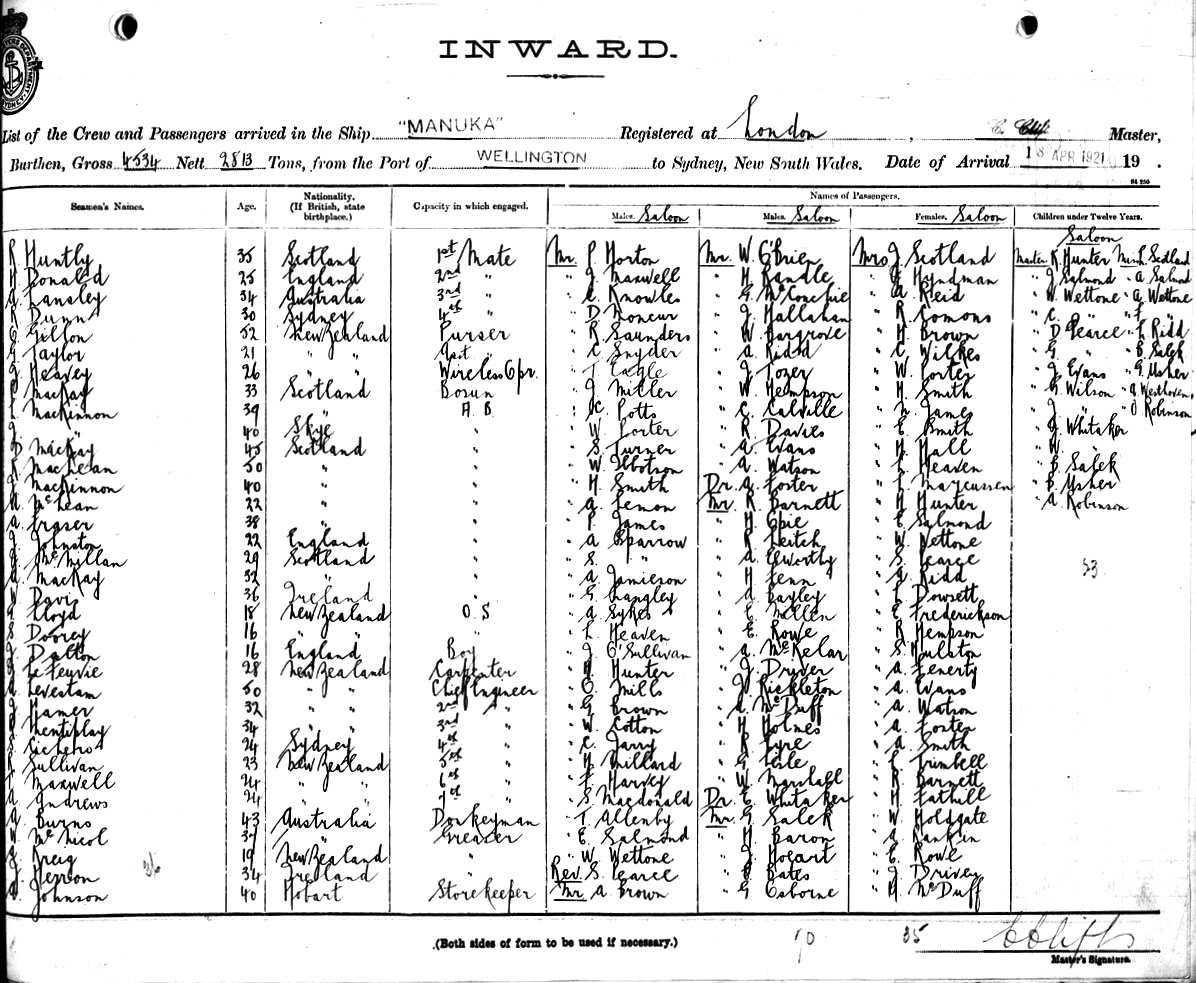 INWARD.
List of the Crew and Passengers arrived in the Ship "MANUKA" Registered at London, C. Clift Master,
Burthen, Gross 4534 Nett 2813 Tons, from the Port of WELLINGTON to Sydney, New South Wales. Date of Arrival 18 APR 1921 19 .
Seamen's Names. Age. Nationality. (If British, state birthplace.) Capacity in which engaged. Names of Passengers.
Males. Saloon Males. Saloon Females. Saloon Children under Twelve Years.
Saloon
R Huntly 35 Scotland 1st Mate Mr. P Horton Mr. W. O'Brien Mrs J. Scotland Master R. Hunter Miss H. Scotland
H Donald 25 England 2nd " " J. Maxwell " H Randle " J Hyndman " J. Salmond " A Salmond
Langley 34 Australia 3rd " " C. Knowles " G McConchie " A Reid " W. Wettone " A. Wettone
R Dunn 30 Sydney 4th " " D Moncur " J Hallahan " R. Somons " C. " " F "
Gillon 52 New Zealand Purser " R. Saunders " W. Hargrove " H. Brown " D Pearce " E Ridd
Taylor 21 " " Asst " " C Snyder " A. Ridd " C Wilkes " G " " B. Salek
Heavey 26 " " Wireless Opr. " T Eagle " J Tozer " W. Porter " J. Evans " G Usher
MacKay 33 Scotland Bosun " J Miller " W. Hempson " H. Smith " G Wilson " A Westhoven
MacKinnon 39 " A B " C. Potts " C. Calville " N. James " J " " O Robinson
J. " 40 Skye " " W Porter " R. Davies " E Smith " J. Whitaker
D MacKay 45 Scotland " " S. Turner " A Evans " H Hall " H. "
R MacLean 50 " " " W. Ibbotson " A. Watson " L Heaven " B. Salek
MacKinnon 40 " " " H Smith Dr. A. Foster " L. Marcussen " B Usher
McLean 22 " " " A. Lemon Mr R Barnett " H Hunter " A Robinson
A Fraser 38 " " " P. James " H Opie " E Salmond
Johnston 22 England " " A Sparrow " R Leitch " W Wettone
J. McMillan 29 Scotland " " S. " " A Elworthy " S. Pearce 53
A. MacKay 32 " " " A. Jamieson " H Fenn " G Ridd
W Davis 36 Ireland " " G Langley " A Bayley " L Dowsett
Lloyd 18 New Zealand O. S " A Sykes " C Millen " E Frederickson
S Doorey 16 " " " " L Heaven " E. Rowe " R Hempson
J. Dalton 16 England Boy " J O'Sullivan " A. McKelar " S Hulston
Le Feyvre 28 New Zealand Carpenter " R Hunter " J. Driver " A Fenerty
A Leventam 50 " " Chief Engineer " O Mills " W Rickleton " A Evans
J Hamer 32 " " 2nd " " G Brown " A. McDuff " A. Watson
Hentiplay 34 " " 3rd " " W Cotton " H Holmes " A Foster
24 Sydney 4th " " C. Jarry " R Fyre " A Smith
R Sullivan 23 New Zealand 5th " " H Millard " G Leile " E Trimbell
Maxwell 24 " " 6th " " F Harvey " W Marshall " R Barnett
A Andrews 24 " " 7th " " S. Macdonald Dr. E Whitaker " H Tathill
G Burns 43 Australia Donkeyman " T Allenby Mr. G Salek " W Holdgate
W. McNicol 37 " Greaser " E. Salmond " H Baron " G Rankin
Greig 19 New Zealand " " W Wettone " J. Hogart " E. Rowe
Herron 36 34 Ireland " Rev. S. Pearce " E Bates " J. Driver
J. Johnson 40 Hobart Storekeeper Mr. A Brown " G Osborne " H McDuff
(Both sides of form to be used if necessary.) 70 35 C Clift
Master's Signature.